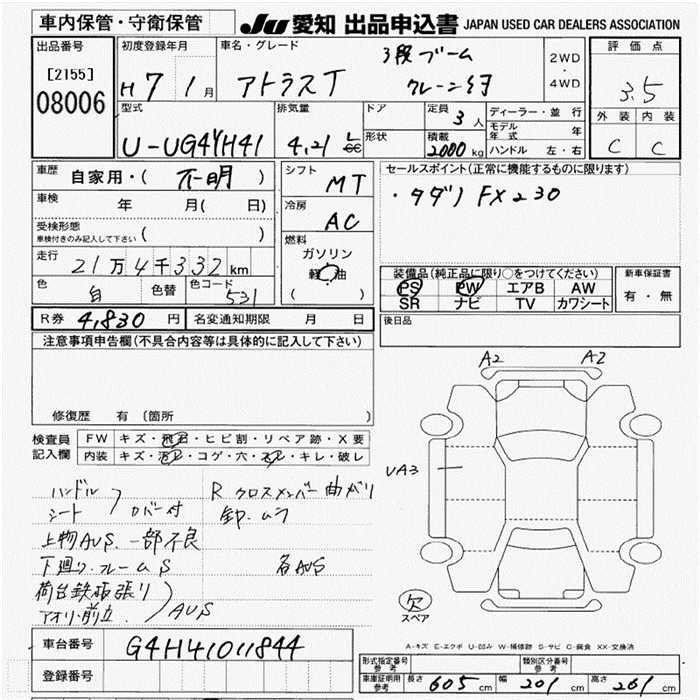 車内保管・守衛保管 JU 愛知 出品申込書 JAPAN USED CAR DEALERS ASSOCIATION
出品番号 初度登録年月 車名・グレード 3段ブーム 2WD・4WD 評価点
[2155] 08006 H7 1月 アトラスT クレーン付 3.5
型式 排気量 ドア 定員 3人 ディーラー・並行 外装 内装
形状 積載 2000kg モデル年式 年 C C
U-UG4YH41 4.21 L cc ハンドル 左・右
車歴 自家用・(不明) シフト MT セールスポイント(正常に機能するものに限ります)
車検 年 月( 日) 冷房 AC ・タダノ FX230
受検形態 車検付きのみ記入して下さい ( )
燃料 ガソリン 軽油 ( )
走行 21万4千332km 装備品(純正品に限り○をつけてください) 新車保証書
色 白 色替 色コード 531 PS PW エアB AW 有・無
SR ナビ TV カワシート
R券 4,830円 名変通知期限 月 日 後日品
注意事項申告欄(不具合内容等は具体的に記入して下さい)
A2 A2
修復歴 有 (箇所
検査員記入欄 FW キズ・飛石・ヒビ割・リペア跡・X要
内装 キズ・汚レ・コゲ・穴・スレ・キレ・破レ
UA3
ハンドル R クロスメンバー曲がり
シート カバー付
上物AUS.一部不良
下廻り.フレームS 各AUS
荷台鉄板張り
アオリ・前立 AUS
欠
スペア
A-キズ E-エクボ U-凹み W-補修跡 S-サビ C-腐食 XX-交換済
車台番号 G4H41011844
登録番号
形式指定番号 参考 類別区分番号 参考
車庫証明用 参考 長さ 605cm 幅 201cm 高さ 261cm